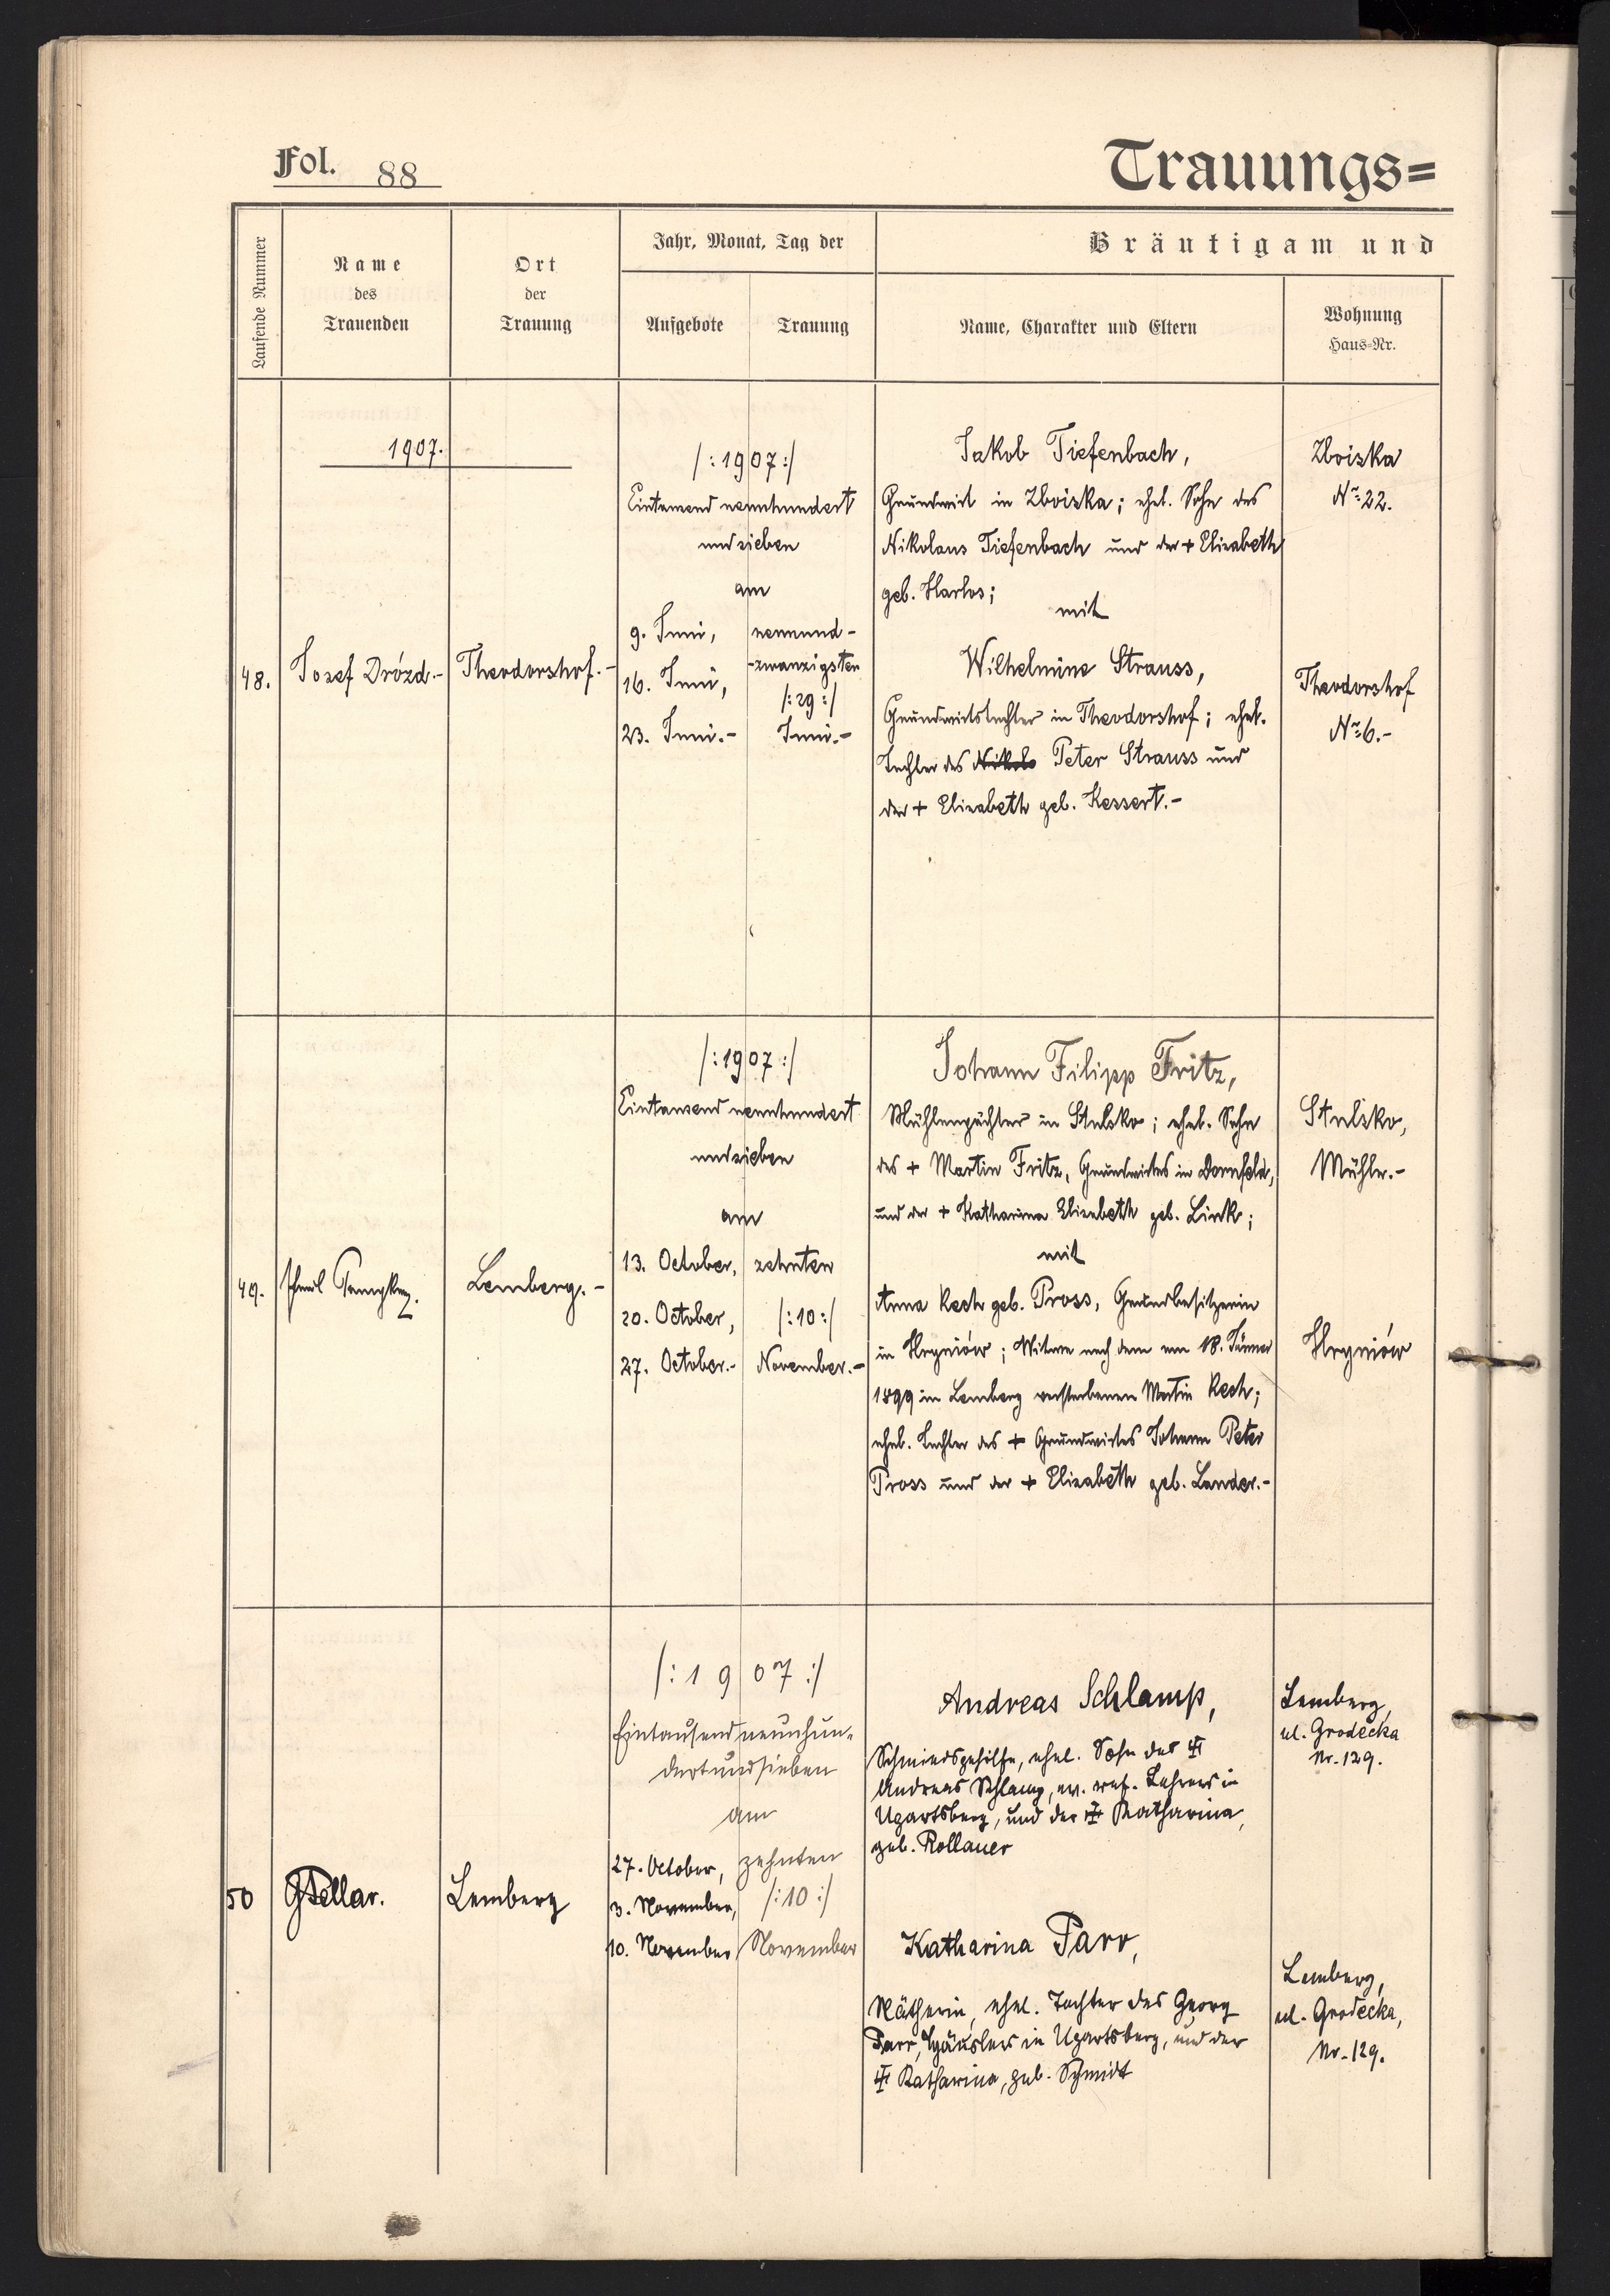 Fol. 88
Trauungs=
Laufende Nummer
Name
des
Trauenden
Ort
der
Trauung
Jahr, Monat, Tag der
Aufgebote
Trauung
Bräutigam und
Name, Charakter und Eltern
Wohnung
Haus-Nr.
1907.
48.
Jozef Drózd.-
Theodorshof.-
/:1907:/
Eintausend neunhundert
und sieben
am
9. Juni,
16. Juni,
23. Juni.-
neunund-
-zwanzigsten
/:29:/
Juni.-
Jakob Tiefenbach,
Grundwirt in Zboiska; ehel. Sohn des
Nikolaus Tiefenbach und der + Elisabeth
geb. Harlos;
mit
Wilhelmine Strauss,
Grundwirtstochter in Theodorshof; ehel.
Tochter des Nikola Peter Strauss und
der + Elisabeth geb. Kessert.-
Zboiska
Nr. 22.
Theodorshof
Nr. 6.-
49.
Lemberg.-
/:1907:/
Eintausend neunhundert
und sieben
am
13. October,
20. October,
27. October.-
zehnten
/:10:/
November.-
Johann Filipp Fritz,
Mühlenpächter in Stulsko; ehel. Sohn
des + Martin Fritz, Grundwirtes in Dornfeld,
und der + Katharina Elisabeth geb. Link;
mit
Anna Rech geb. Pross, Grundbesitzerin
in Hryniów; Witwe nach dem am 18. Jänner
1899 in Lemberg verstorbenen Martin Rech;
ehel. Tochter des + Grundwirtes Johann Peter
Pross und der + Elisabeth geb. Lander.-
Stulsko,
Mühle.-
Hryniów
50
GKellar.
Lemberg
/:1907:/
Eintausend neunhun-
dertundsieben
am
27. October,
3. November,
10. November
zehnten
/:10:/
November
Andreas Schlamp,
Schmiedgehilfe, ehel. Sohn des +
Andreas Schlamp, ev. ref. Lehrers in
Ugartsberg, und der + Katharina,
geb. Rollauer
Katharina Parr,
Nätherin, ehel. Tochter des Georg
Parr, Häuslers in Ugartsberg, und der
+ Katharina, geb. Schmidt
Lemberg,
ul. Grodecka
Nr. 129.
Lemberg,
ul. Grodecka,
Nr. 129.